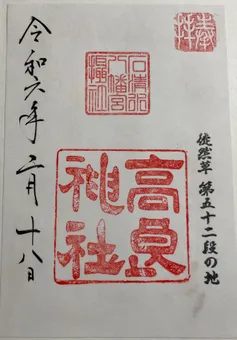 奉拝
徒然草 第五十二段の地
石清水八幡宮摂社
高良神社
令和六年二月十八日